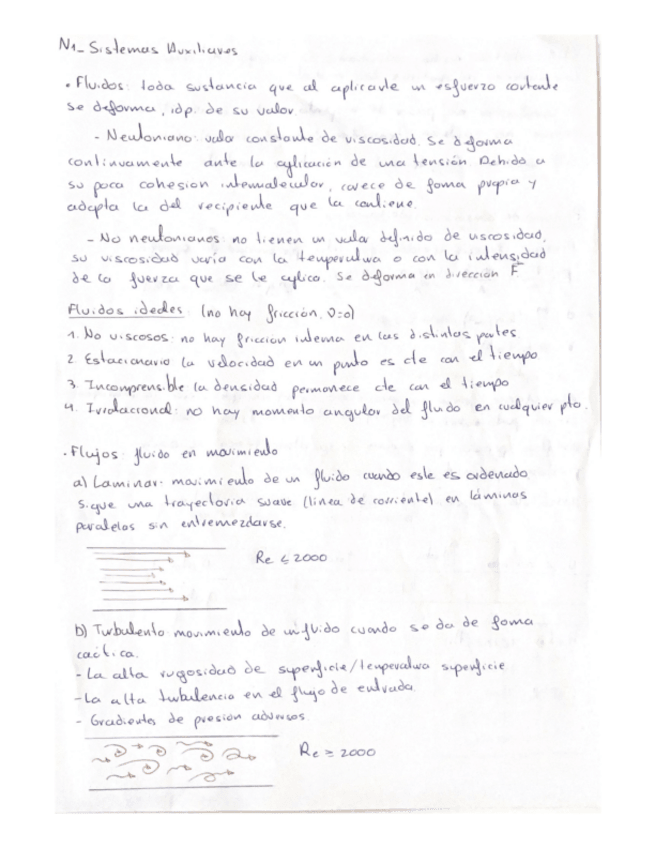 N1_ Sistemas Auxiliares
• Fluidos: toda sustancia que al aplicarle un esfuerzo cortante
se deforma, idp. de su valor.
- Newtoniano: valor constante de viscosidad. Se deforma
continuamente ante la aplicación de una tensión. Debido a
su poca cohesion intermolecular, carece de forma propia y
adapta la del recipiente que la contiene.
- No newtonianos: no tienen un valor definido de viscosidad,
su viscosidad varia con la temperatura o con la intensidad
de la fuerza que se le aplica. Se deforma en dirección F
Fluidos ideales: (no hay fricción, υ=0)
1. No viscosos: no hay friccion interna en las distintas partes
2. Estacionario: la velocidad en un punto es cte con el tiempo
3. Incomprensible: la densidad permanece cte con el tiempo
4. Irrotacional: no hay momento angular del fluido en cualquier pto.
• Flujos: fluido en movimiento
a) Laminar: movimiento de un fluido cuando este es ordenado
sigue una trayectoria suave (linea de corriente) en láminas
paralelas sin entremezclarse.
Re ≤ 2000
b) Turbulento: movimiento de un fluido cuando se da de forma
caótica.
- La alta rugosidad de superficie/temperatura superficie
- La alta turbulencia en el flujo de entrada.
- Gradientes de presion adversos.
Re ≥ 2000